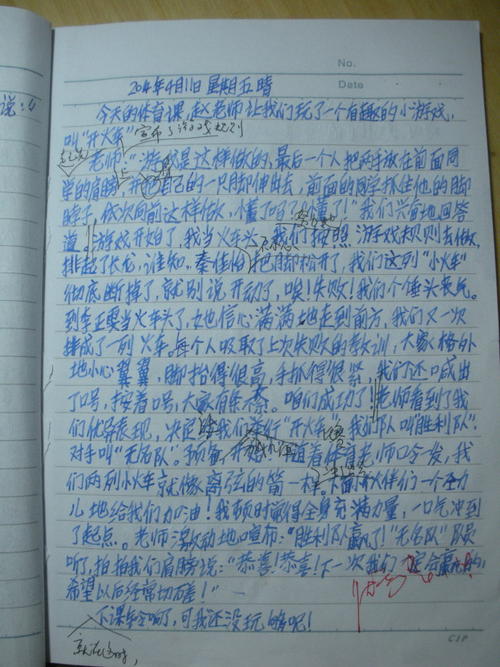 说:"
No.
Date
2014年4月11日 星期五 晴
今天的体育课,赵老师让我们玩了一个有趣的小游戏,
叫"开火车" 宣布了游戏规则
老师:"游戏是这样做的,最后一个人把两手放在前面同
学的肩膀,并把自己的一只脚伸出去,前面的同学抓住他的脚
脖子,依次向前这样做,懂了吗?""懂了!"我们兴奋地回答
道。游戏开始了,我当火车头,我们按照游戏规则去做,
排起了长龙,谁知,秦佳怡把脚松开了,我们这列"小火车"
彻底断掉了,就别说开动了,唉!失败!我们个个垂头丧气。
到李正雯当火车头了,她信心满满地走到前方,我们又一次
排成了一列火车,每个人吸取了上次失败的教训,大家格外
地小心翼翼,脚抬得很高,手抓得很紧,我们还喊出
了口号,按着口号,大家有条不紊。咱们成功了!老师看到了我
们优异表现,决定我们举行"开火车",我们队叫"胜利队"
对手叫"无名队"。预备,开始!随着体育老师口令发,我
们两列小火车就像离弦的箭一样。小伙伴们一个劲
儿地给我们加油!我顿时觉得全身充满力量,一口气冲到
了起点。老师激动地宣布:"胜利队赢了!""无名队"队员
听了,拍拍我们肩膀说:"恭喜!恭喜!下一次我们一定会赢的,
希望以后经常切磋!"
下课铃响了,可我还没玩够呢!
就在这时,